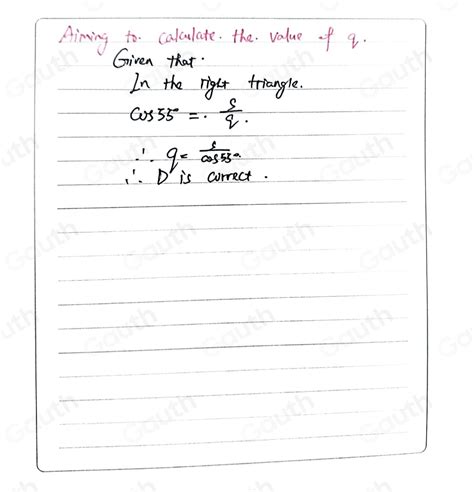 Aiming to calculate the value of q.
Given that.
In the right triangle.
cos 55° = s/q.
∴ q = s/cos 55°.
∴ D is correct.